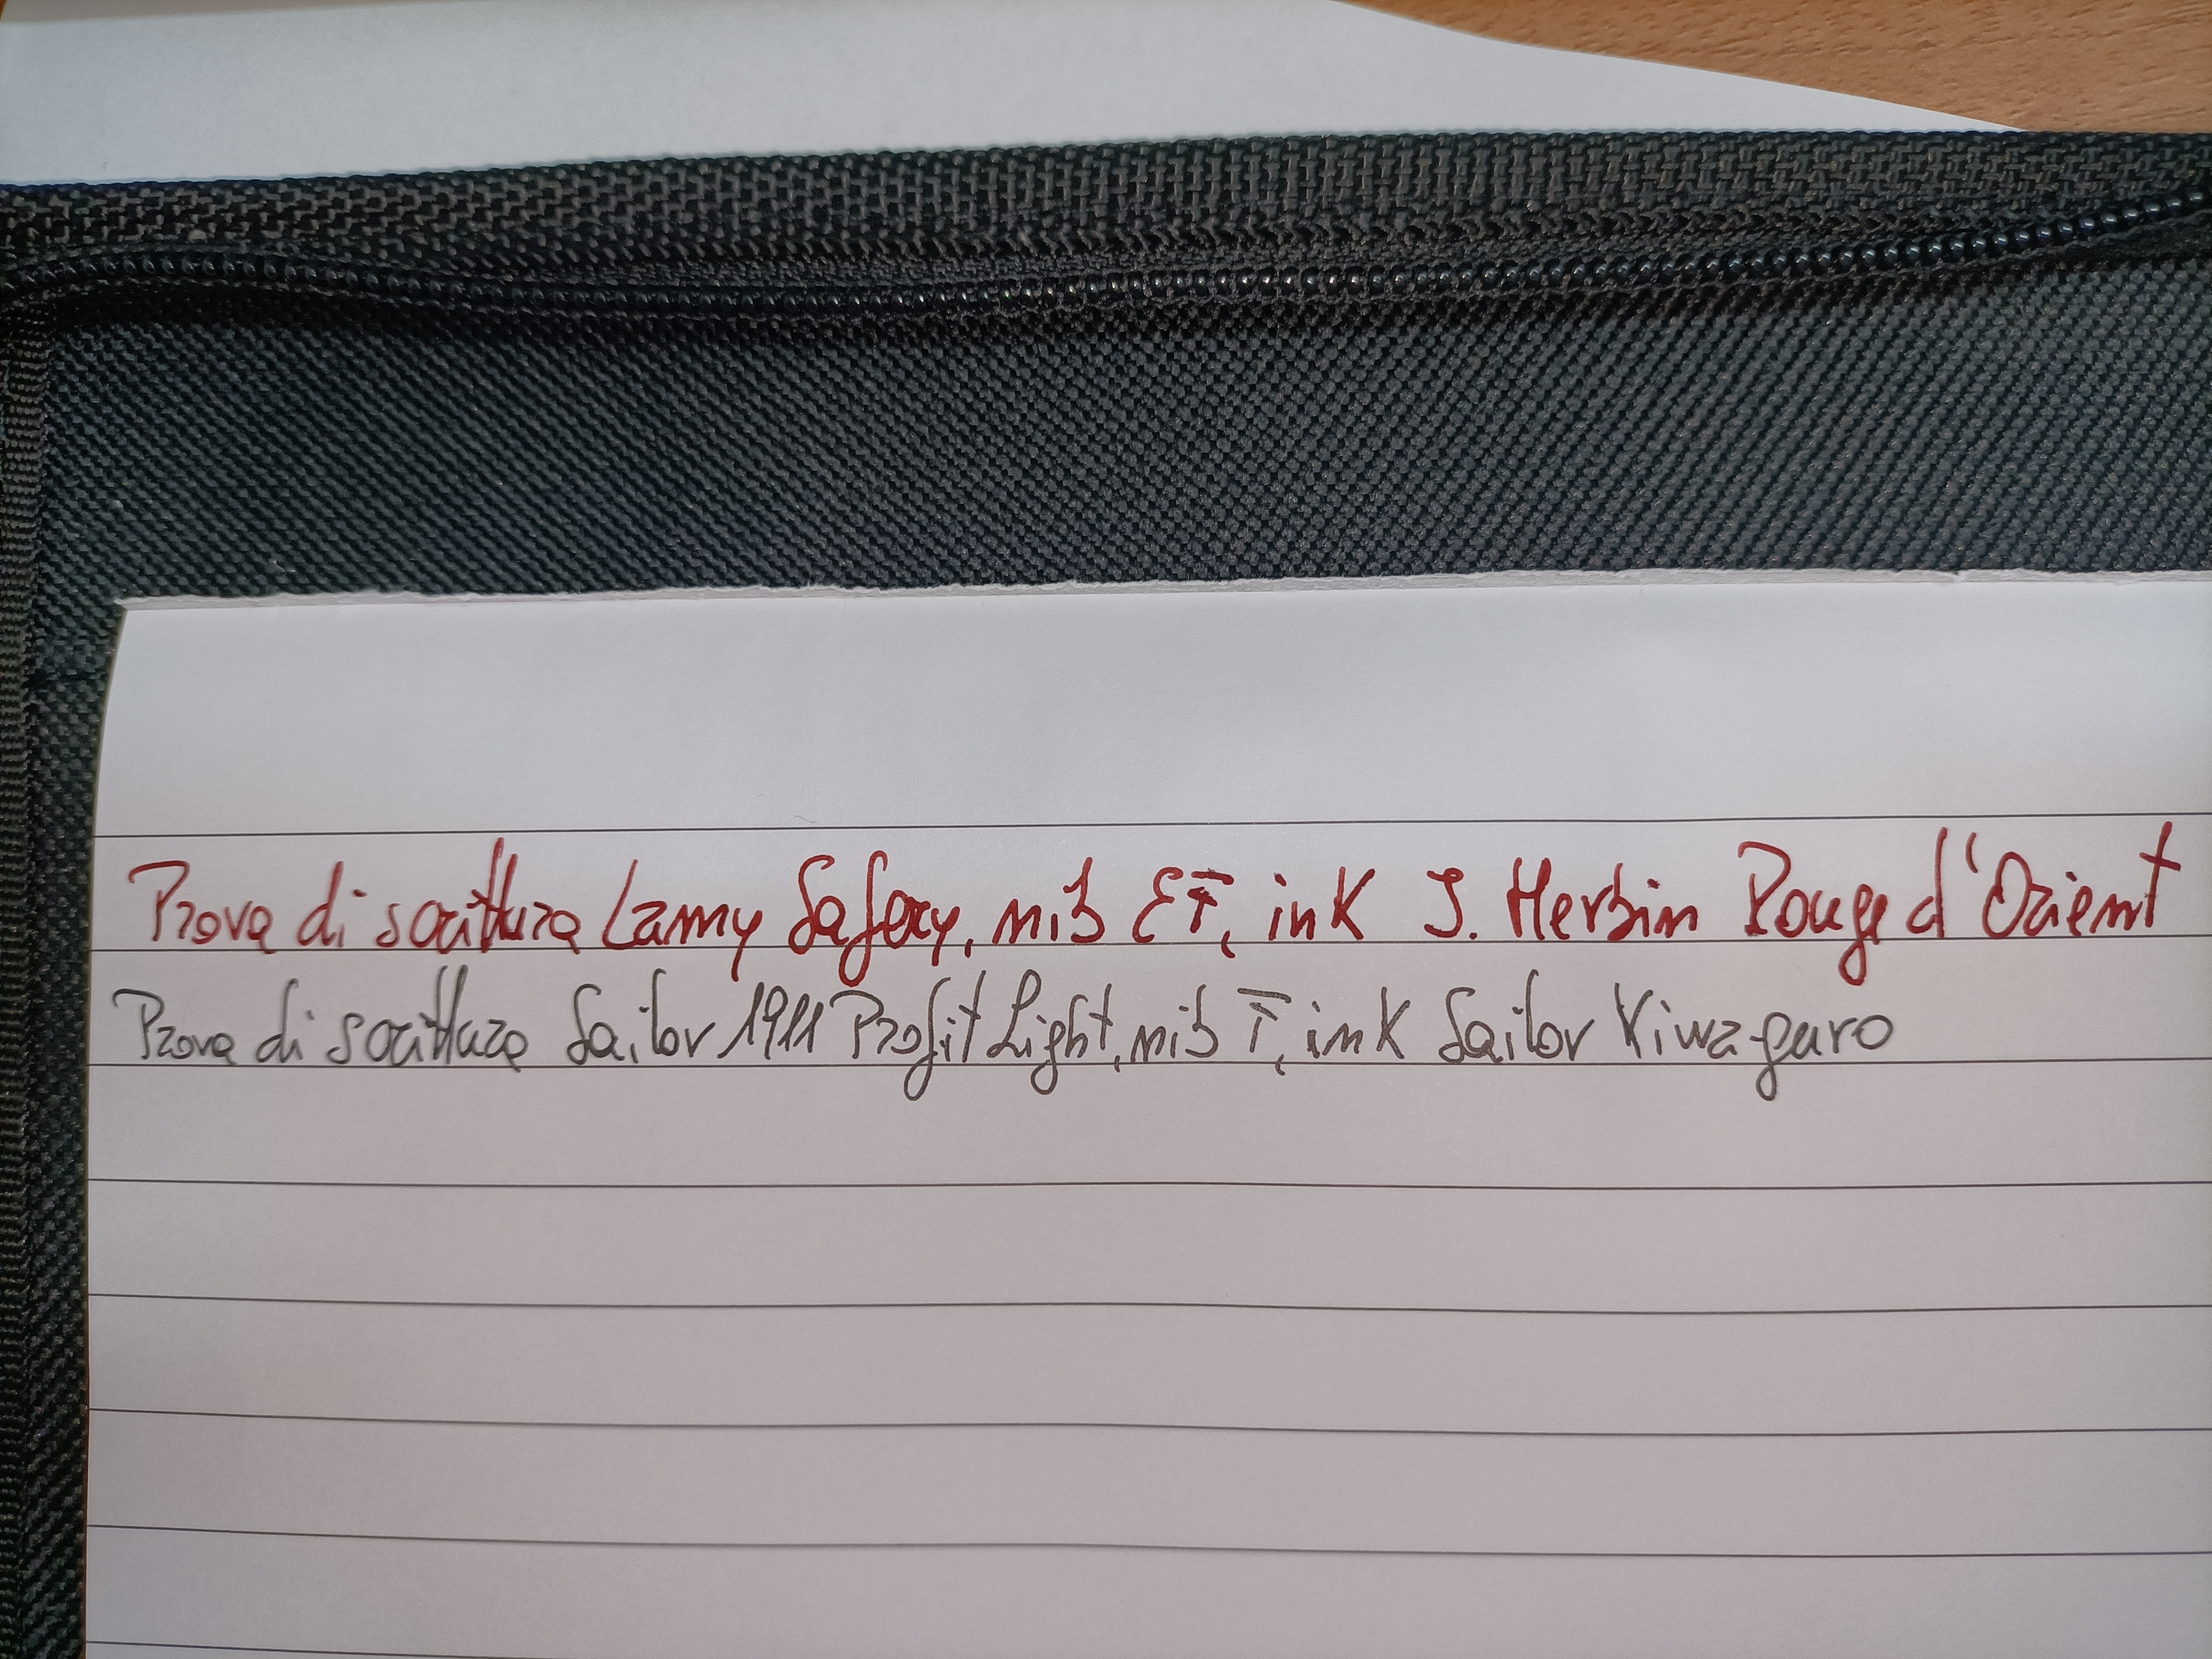 Prova di scrittura Lamy Safary, nib EF, ink J. Herbin Rouge d'Orient
Prova di scrittura Sailor 1911 Profit Light, nib F, ink Sailor Kiwaguro